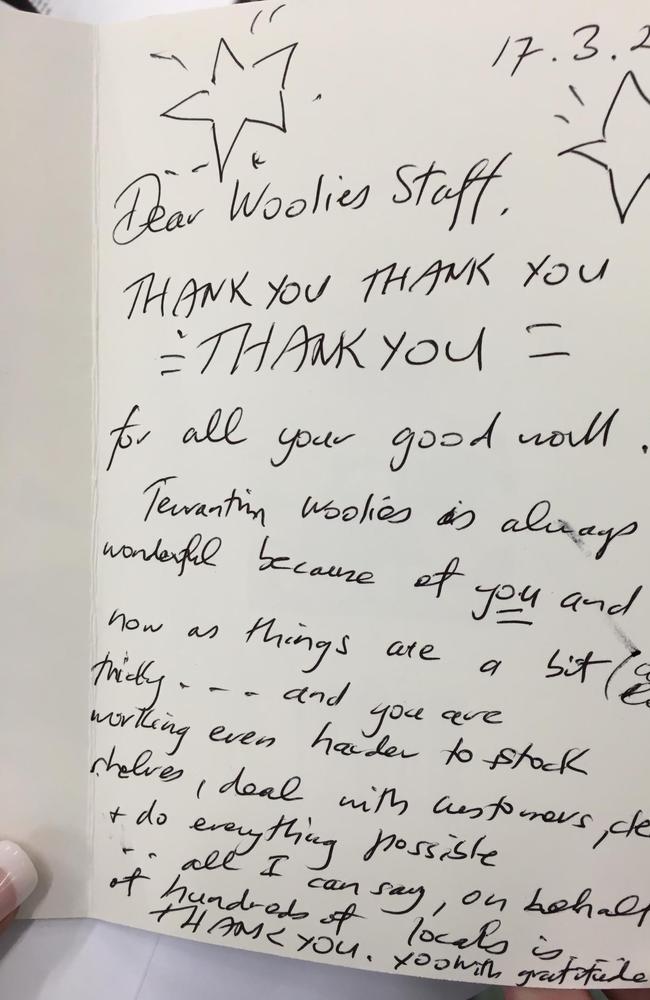 17.3.2
Dear Woolies Staff.
THANK YOU THANK YOU
= THANK YOU =
for all your good work.
Tewantin Woolies is always
wonderful because of you and
now as things are a bit (a
tricky . - - - and you are
working even harder to stock
shelves, deal with customers, cle
+ do everything possible
. . all I can say, on behalf
of hundreds of locals is . . .
THANK YOU. xoo with gratitude